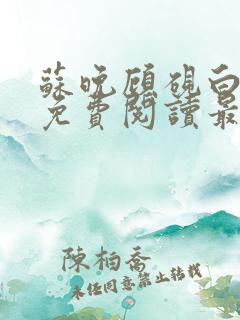 蘇晚顧硯白
免費閱讀最
陳柏喬
未經同意禁止轉載